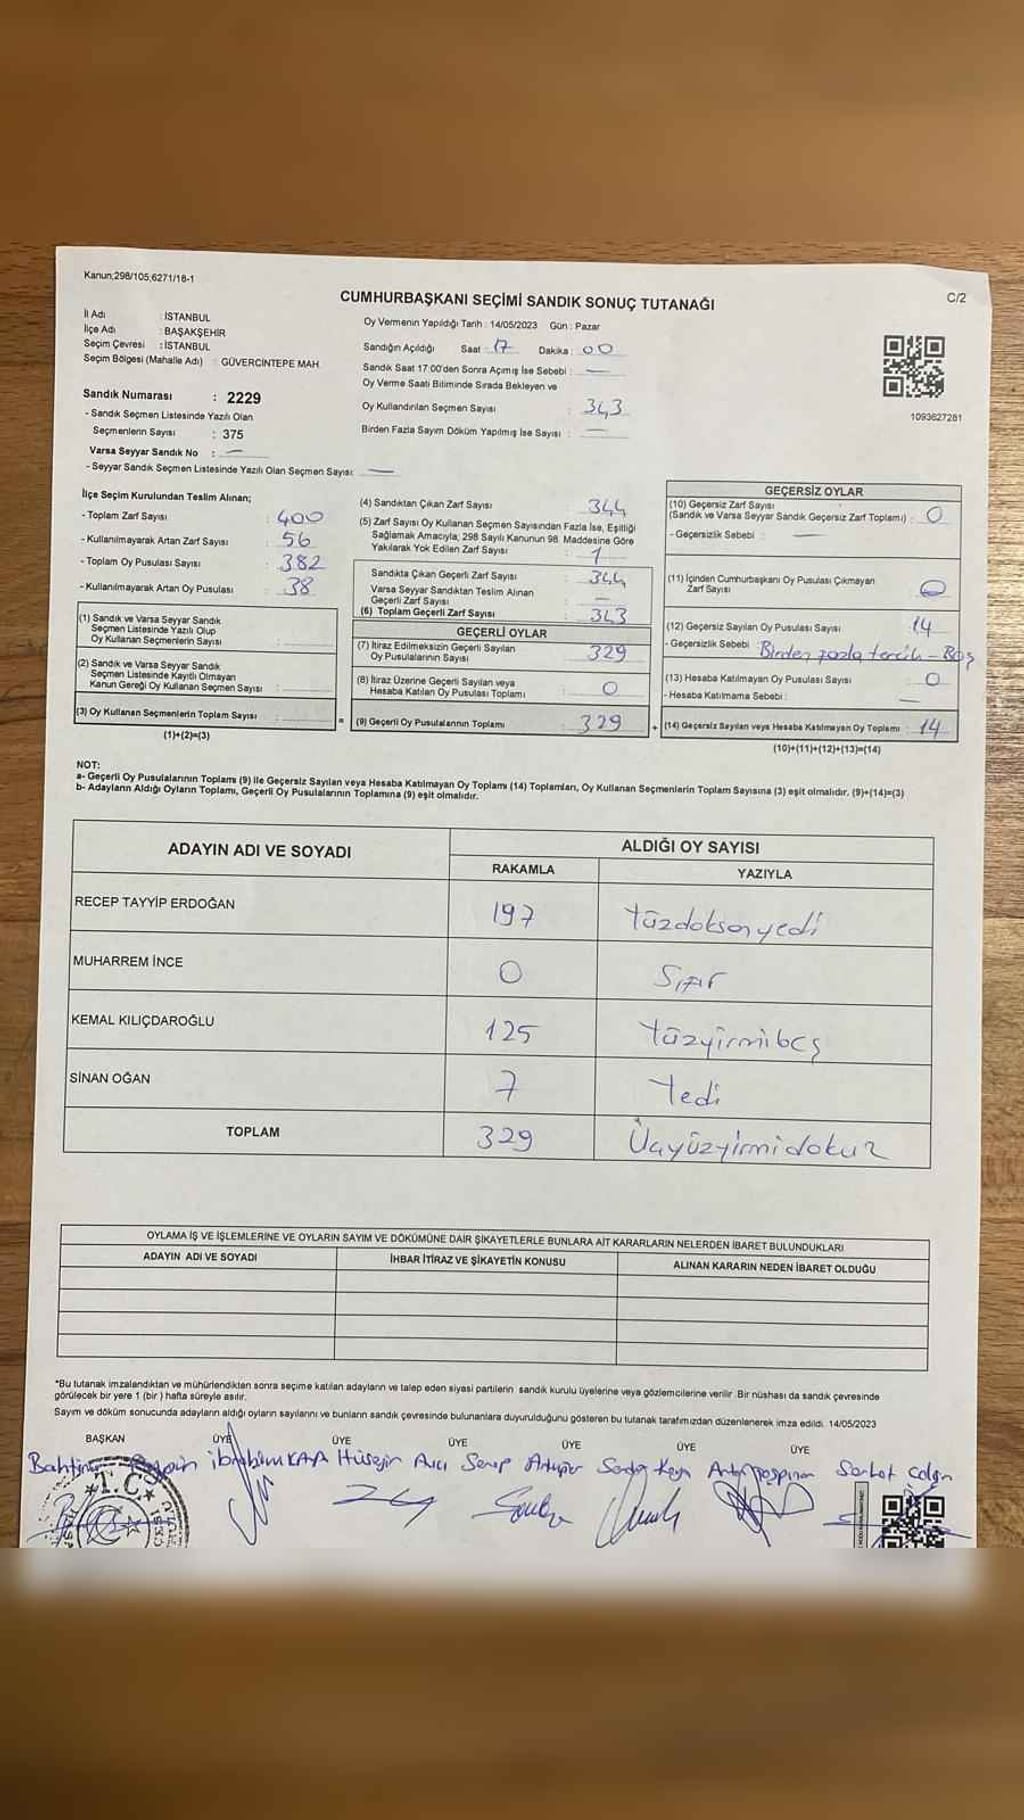 Kanun;298/105,6271/18-1
C/2
CUMHURBAŞKANI SEÇİMİ SANDIK SONUÇ TUTANAĞI
İl Adı : İSTANBUL
İlçe Adı : BAŞAKŞEHİR
Seçim Çevresi : İSTANBUL
Seçim Bölgesi (Mahalle Adı) : GÜVERCİNTEPE MAH
Sandık Numarası : 2229
- Sandık Seçmen Listesinde Yazılı Olan
Seçmenlerin Sayısı : 375
Varsa Seyyar Sandık No : —
- Seyyar Sandık Seçmen Listesinde Yazılı Olan Seçmen Sayısı: —
Oy Vermenin Yapıldığı Tarih : 14/05/2023 Gün : Pazar
Sandığın Açıldığı Saat : 17 Dakika : 00
Sandık Saat 17:00'den Sonra Açımış İse Sebebi : —
Oy Verme Saati Bitiminde Sırada Bekleyen ve
Oy Kullandırılan Seçmen Sayısı : 343
Birden Fazla Sayım Döküm Yapılmış İse Sayısı : —
1093627281
İlçe Seçim Kurulundan Teslim Alınan;
- Toplam Zarf Sayısı : 400
- Kullanılmayarak Artan Zarf Sayısı : 56
- Toplam Oy Pusulası Sayısı : 382
- Kullanılmayarak Artan Oy Pusulası : 38
(1) Sandık ve Varsa Seyyar Sandık
Seçmen Listesinde Yazılı Olup
Oy Kullanan Seçmenlerin Sayısı :
(2) Sandık ve Varsa Seyyar Sandık
Seçmen Listesinde Kayıtlı Olmayan
Kanun Gereği Oy Kullanan Seçmen Sayısı :
(3) Oy Kullanan Seçmenlerin Toplam Sayısı :
(1)+(2)=(3)
(4) Sandıktan Çıkan Zarf Sayısı : 344
(5) Zarf Sayısı Oy Kullanan Seçmen Sayısından Fazla İse, Eşitliği
Sağlamak Amacıyla; 298 Sayılı Kanunun 98. Maddesine Göre
Yakılarak Yok Edilen Zarf Sayısı : 1
Sandıkta Çıkan Geçerli Zarf Sayısı : 344
Varsa Seyyar Sandıktan Teslim Alınan
Geçerli Zarf Sayısı : —
(6) Toplam Geçerli Zarf Sayısı : 343
GEÇERLİ OYLAR
(7) İtiraz Edilmeksizin Geçerli Sayılan
Oy Pusulalarının Sayısı : 329
(8) İtiraz Üzerine Geçerli Sayılan veya
Hesaba Katılan Oy Pusulası Toplamı : 0
=
(9) Geçerli Oy Pusulalarının Toplamı : 329
+
GEÇERSİZ OYLAR
(10) Geçersiz Zarf Sayısı
(Sandık ve Varsa Seyyar Sandık Geçersiz Zarf Toplamı) : 0
- Geçersizlik Sebebi : —
(11) İçinden Cumhurbaşkanı Oy Pusulası Çıkmayan
Zarf Sayısı : 0
(12) Geçersiz Sayılan Oy Pusulası Sayısı : 14
- Geçersizlik Sebebi : Birden fazla tercih - Boş
(13) Hesaba Katılmayan Oy Pusulası Sayısı : 0
- Hesaba Katılmama Sebebi : —
(14) Geçersiz Sayılan veya Hesaba Katılmayan Oy Toplamı : 14
(10)+(11)+(12)+(13)=(14)
NOT:
a- Geçerli Oy Pusulalarının Toplamı (9) ile Geçersiz Sayılan veya Hesaba Katılmayan Oy Toplamı (14) Toplamları, Oy Kullanan Seçmenlerin Toplam Sayısına (3) eşit olmalıdır. (9)+(14)=(3)
b- Adayların Aldığı Oyların Toplamı, Geçerli Oy Pusulalarının Toplamına (9) eşit olmalıdır.
ADAYIN ADI VE SOYADI
ALDIĞI OY SAYISI
RAKAMLA YAZIYLA
RECEP TAYYİP ERDOĞAN 197 Yüzdoksanyedi
MUHARREM İNCE 0 Sıfır
KEMAL KILIÇDAROĞLU 125 Yüzyirmibeş
SİNAN OĞAN 7 Yedi
TOPLAM 329 Üçyüzyirmidokuz
OYLAMA İŞ VE İŞLEMLERİNE VE OYLARIN SAYIM VE DÖKÜMÜNE DAİR ŞİKAYETLERLE BUNLARA AİT KARARLARIN NELERDEN İBARET BULUNDUKLARI
ADAYIN ADI VE SOYADI İHBAR İTİRAZ VE ŞİKAYETİN KONUSU ALINAN KARARIN NEDEN İBARET OLDUĞU
*Bu tutanak imzalandıktan ve mühürlendikten sonra seçime katılan adayların ve talep eden siyasi partilerin sandık kurulu üyelerine veya gözlemcilerine verilir. Bir nüshası da sandık çevresinde
görülecek bir yere 1 (bir) hafta süreyle asılır.
Sayım ve döküm sonucunda adayların aldığı oyların sayılarını ve bunların sandık çevresinde bulunanlara duyurulduğunu gösteren bu tutanak tarafımızdan düzenlenerek imza edildi. 14/05/2023
BAŞKAN ÜYE ÜYE ÜYE ÜYE ÜYE ÜYE
İbrahim KAA Hüseyin Avcı
T.C.